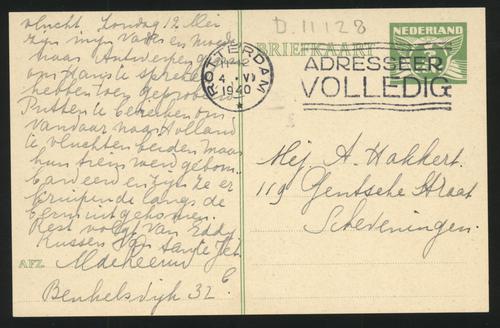 D.11128
NEDERLAND
BRIEFKAART
ROTTERDAM
4 VI
1940
ADRESSEER
VOLLEDIG
vlucht Zondag 12 Mei
zijn mijn Vader en Moeder
naar Antwerpen gegaan
om Hans te spreken
hebben toen geprobeerd
Putten te bereiken om
vandaar naar Holland
te vluchten beiden maar
hun trein werd gebom-
bardeerd en zijn ze er
kruipende langs de
berm uitgekomen.
Rest volgt van Eddy
Kussen van tante Jet.
AFZ.
Beukelsdijk 32
Mej. A. Hakkert.
119 Gentsche Straat
Scheveningen.